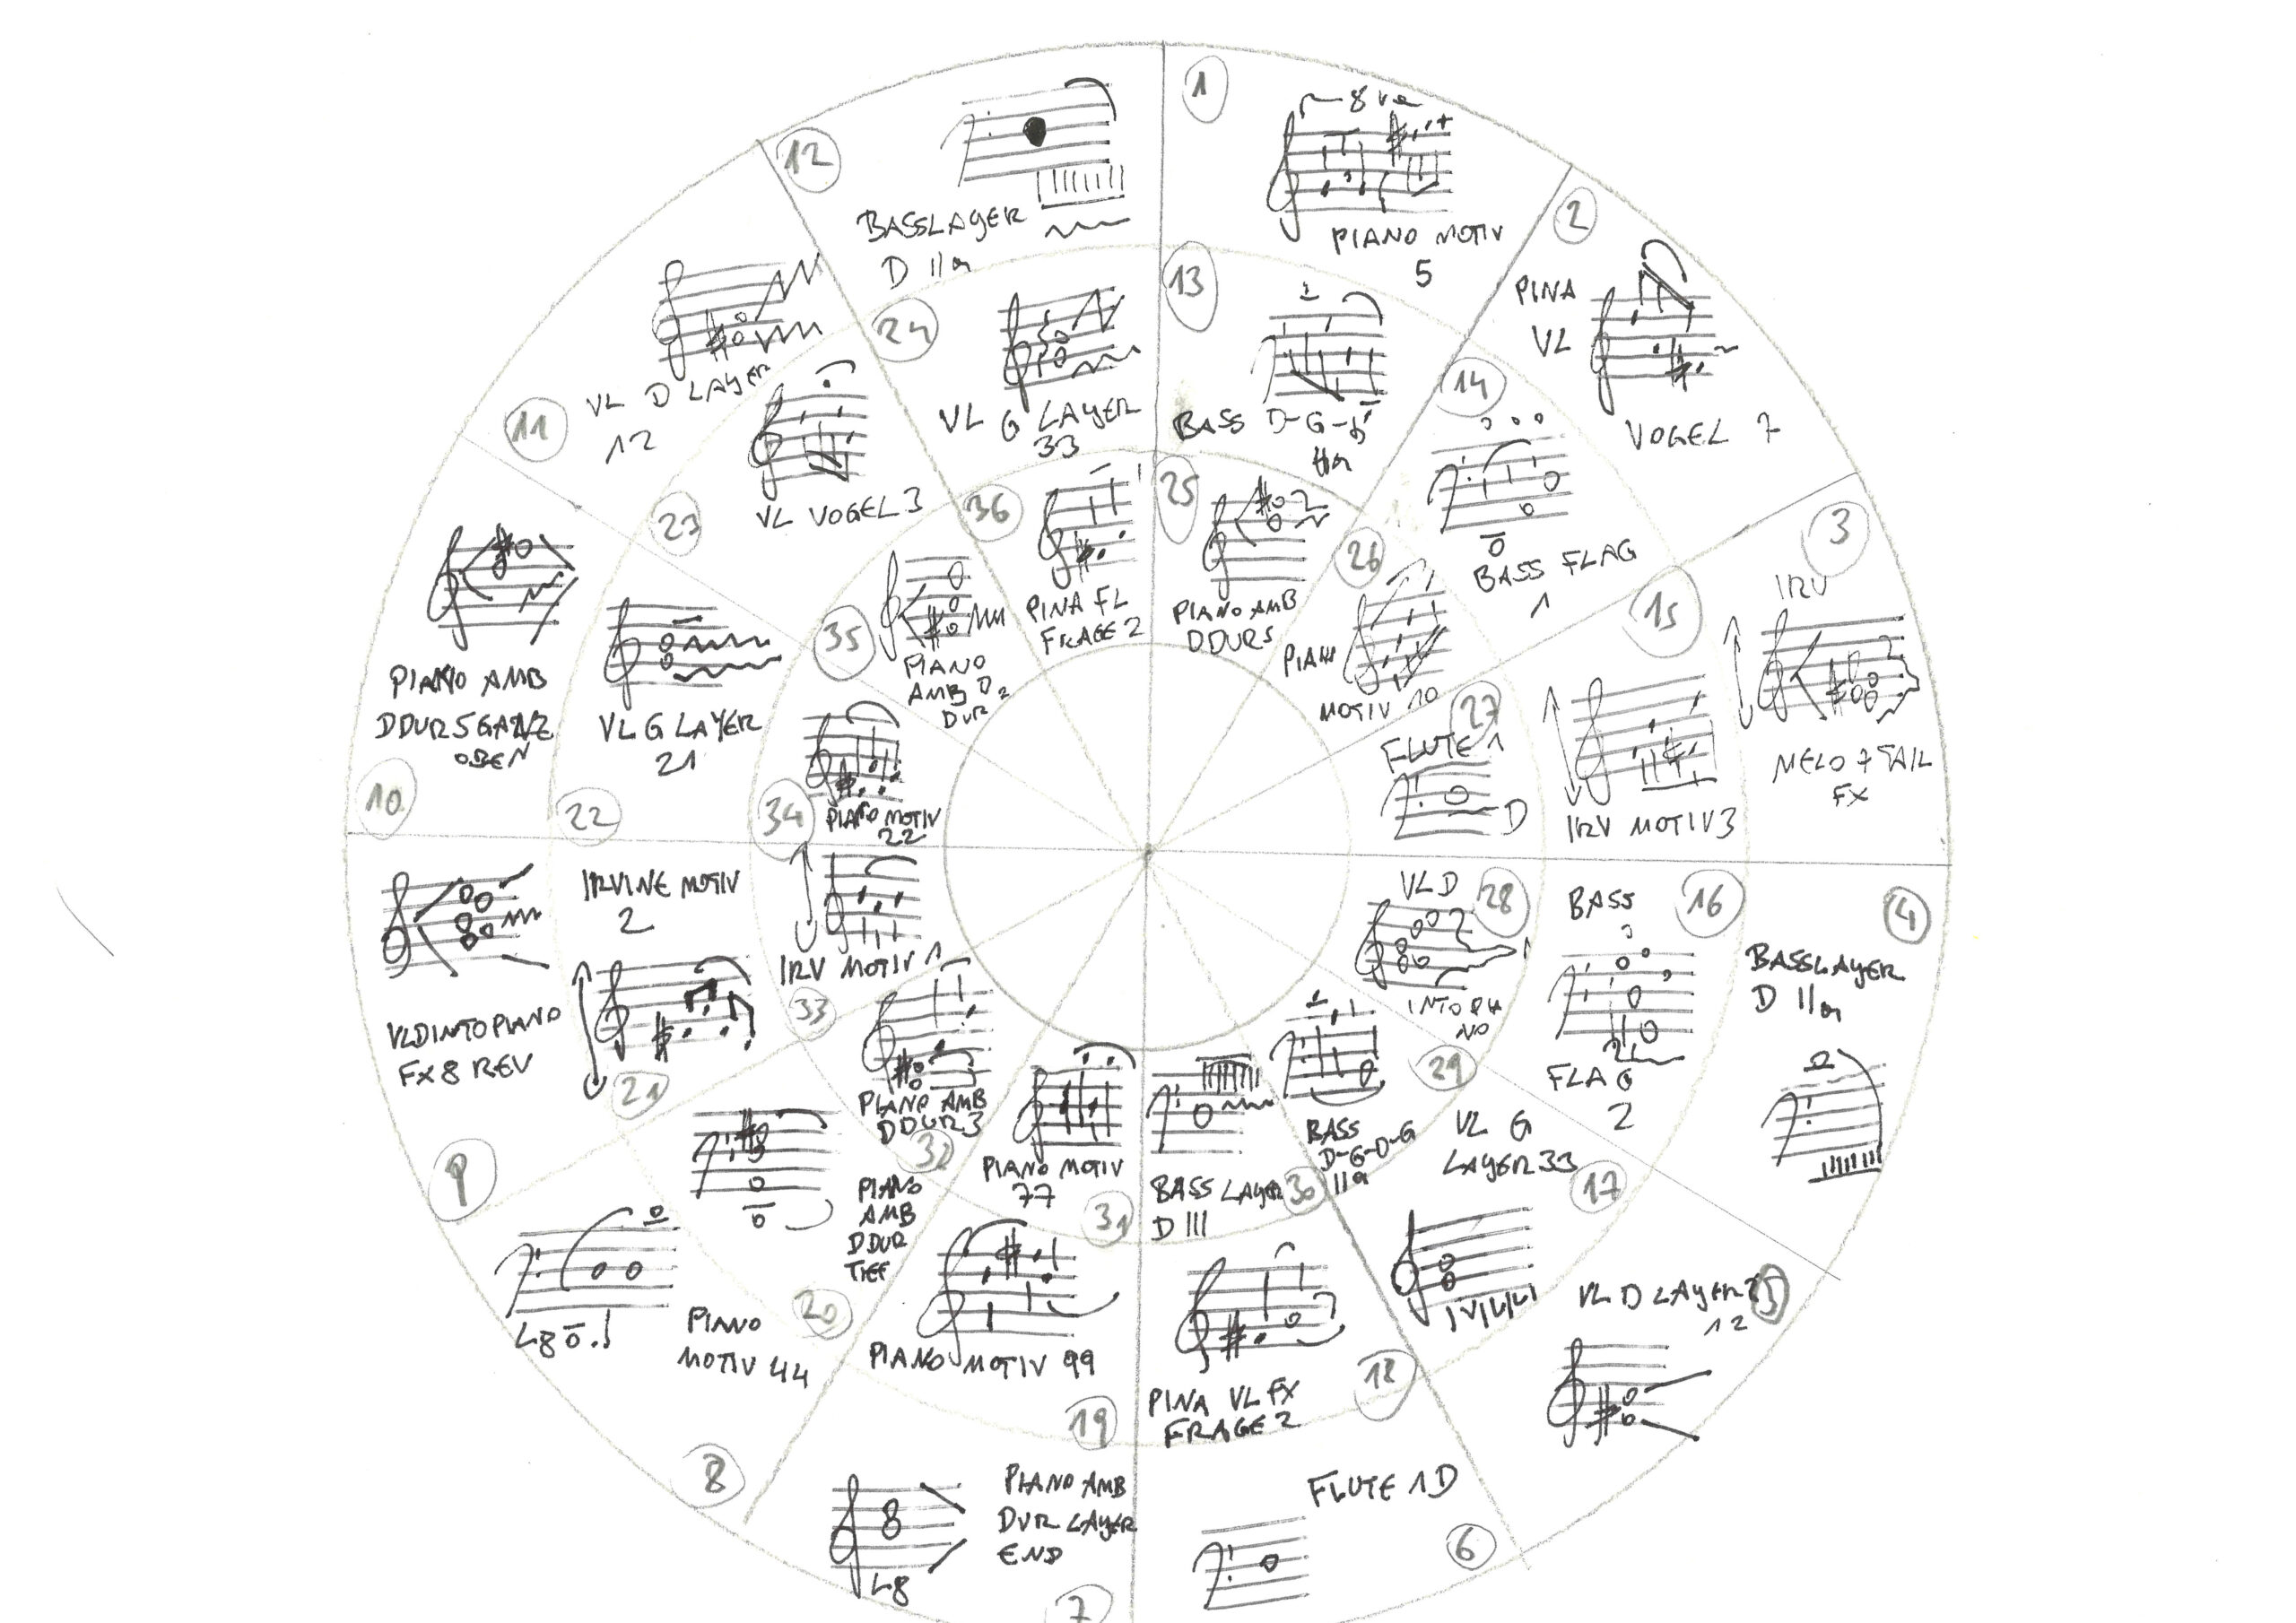 1
8va
PIANO MOTIV
5
2
PINA
VL
VOGEL 7
3
IRV
MELO 7 TAIL
FX
4
BASSLAYER
D IIa
5
VL D LAYER
12
6
FLUTE 1 D
7
PIANO AMB
DUR LAYER
END
L8
8
PIANO
MOTIV 44
L8
9
VLDINTOPIANO
FX 8 REV
10
PIANO AMB
DDUR5GANZ
OBEN
11
VL D LAYER
12
12
BASSLAYER
D IIa
13
BASS D-G-D
IIa
14
BASS FLAG
1
15
IRV MOTIV 3
16
BASS
FLAG
2
17
VL G
LAYER 33
18
PINA VL FX
FRAGE 2
19
PIANO MOTIV 99
20
PIANO
AMB
DDUR
TIEF
21
IRVINE MOTIV
2
22
VL G LAYER
21
23
VL VOGEL 3
24
VL G LAYER
33
25
PIANO AMB
DDUR5
26
PIAN
MOTIV 10
27
FLUTE 1
D
28
VL D
INTO PIA
NO
29
BASS
D-G-D-G
IIa
30
BASS LAYER
D III
31
PIANO MOTIV
77
32
PIANO AMB
DDUR3
33
IRV MOTIV 1
34
PIANO MOTIV
22
35
PIANO
AMB D2
DUR
36
PINA FL
FRAGE 2